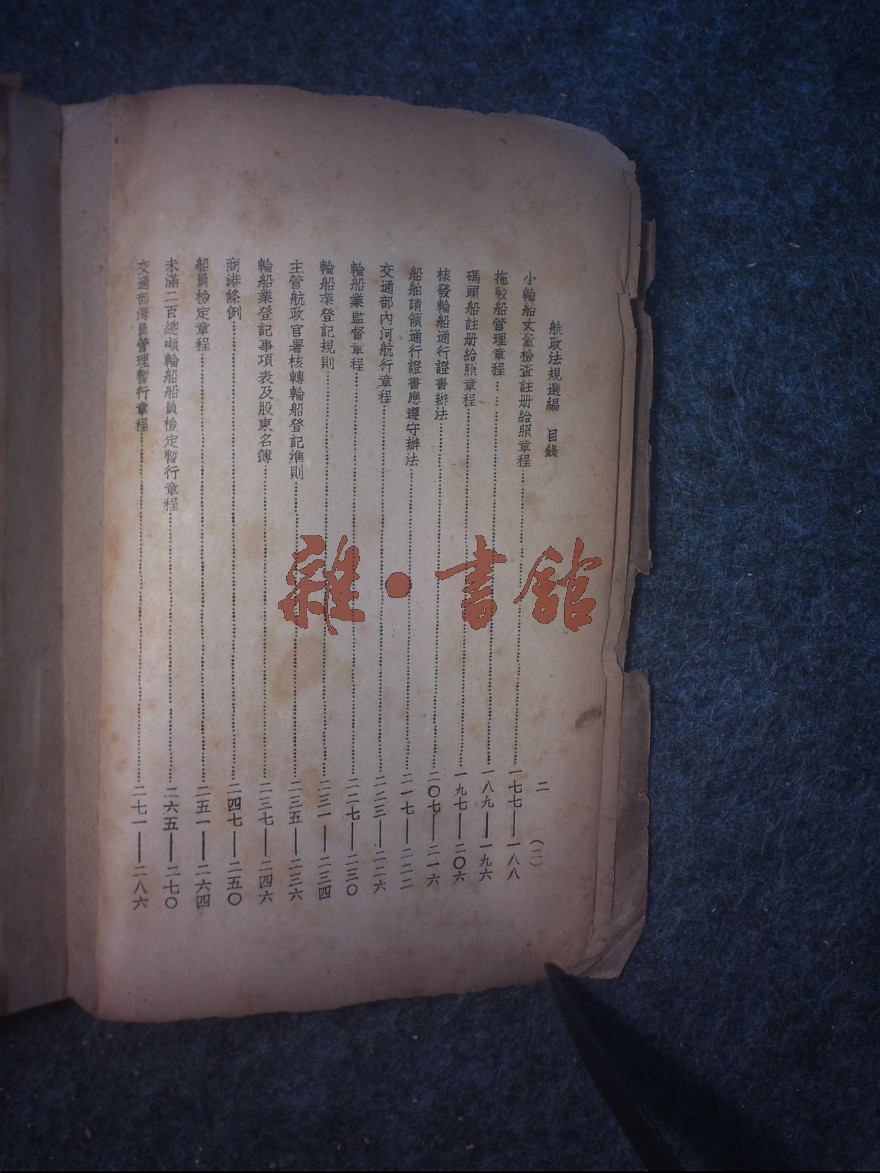 航政法規選編　目錄　二　(二)
小輪船丈量檢查註册給照章程………一七七——一八八
拖駁船管理章程………一八九——一九六
碼頭船註册給照章程………一九七——二〇六
核發輪船通行證書辦法………二〇七——二一六
船舶請領通行證書應遵守辦法………二一七——二二二
交通部內河航行章程………二二三——二二六
輪船業監督章程………二二七——二三〇
輪船業登記規則………二三一——二三四
主管航政官署核轉輪船登記準則………二三五——二三六
輪船業登記事項表及股東名簿………二三七——二四六
商港條例………二四七——二五〇
船員檢定章程………二五一——二六四
未滿二百總噸輪船船員檢定暫行章程………二六五——二七〇
交通部海員管理暫行章程………二七一——二八六
雜·書館